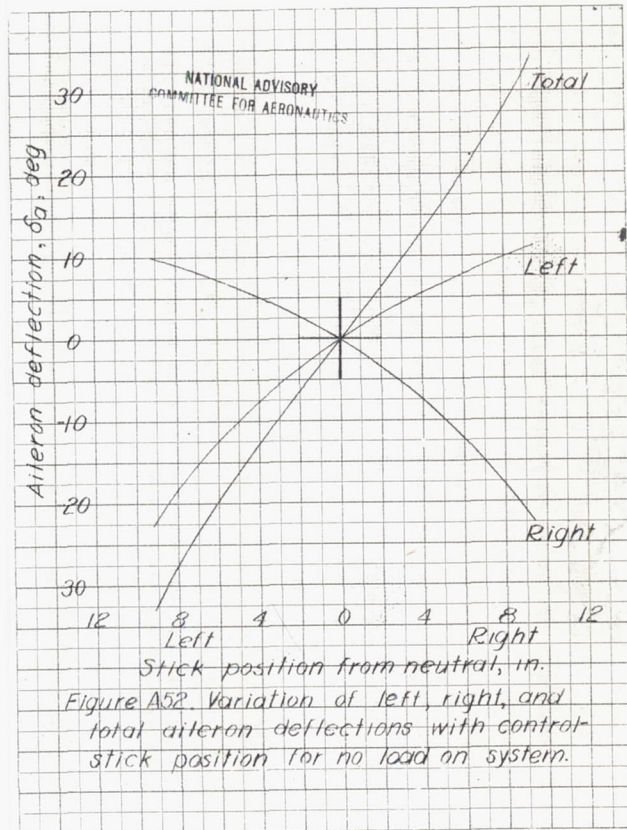 NATIONAL ADVISORY
COMMITTEE FOR AERONAUTICS
Total
Left
Right
Aileron deflection, δa, deg
30
20
10
0
-10
-20
30
12 8 4 0 4 8 12
Left Right
Stick position from neutral, in.
Figure A52. Variation of left, right, and
total aileron deflections with control-
stick position for no load on system.